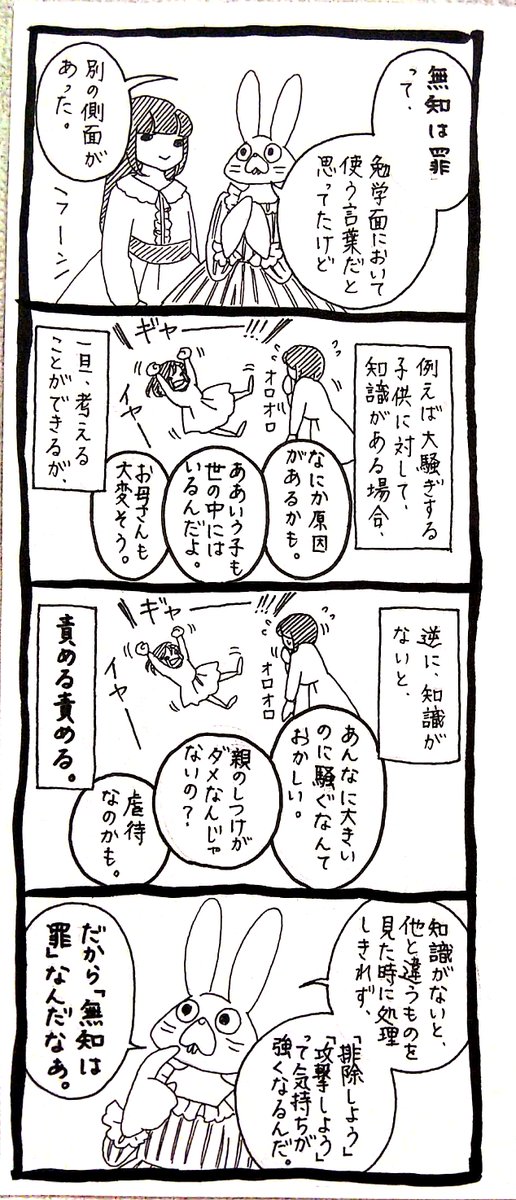 無知は罪
って、
勉学面において
使う言葉だと
思ってたけど
別の側面が
あった。
フーン
例えば大騒ぎする
子供に対して、
知識がある場合、
ギャーーー!!!
イヤー
オロオロ
なにか原因
があるかも。
ああいう子も
世の中には
いるんだよ。
お母さんも
大変そう。
一旦、考える
ことができるが、
逆に、知識が
ないと、
ギャーーー!!!
イヤー
オロオロ
あんなに大きい
のに騒ぐなんて
おかしい。
親のしつけが
ダメなんじゃ
ないの?
虐待
なのかも。
責める責める。
知識がないと、
他と違うものを
見た時に処理
しきれず、
「排除しよう」
「攻撃しよう」
って気持ちが
強くなるんだ。
だから「無知は
罪」なんだなぁ。